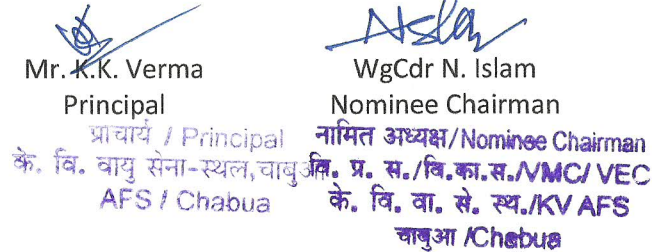 Mr. K.K. Verma
Principal
प्राचार्य / Principal
के. वि. वायु सेना-स्थल, चाबुआ
AFS / Chabua
NIslam
WgCdr N. Islam
Nominee Chairman
नामित अध्यक्ष/Nominee Chairman
वि. प्र. स./वि.का.स./VMC/ VEC
के. वि. वा. से. स्थ./KV AFS
चाबुआ /Chabua